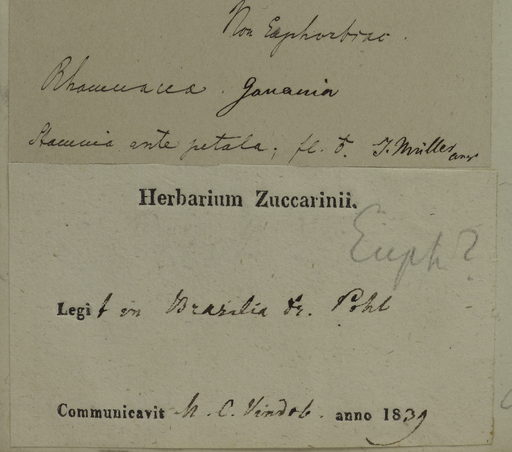 Non Euphorbiac.
Rhamnacea. Gouania
Stamina ante petala, fl. ☿. J. Müller arg.
Herbarium Zuccarinii.
Euph?
Legit in Brasilia Dr. Pohl
Communicavit M. C. Vindob. anno 1839